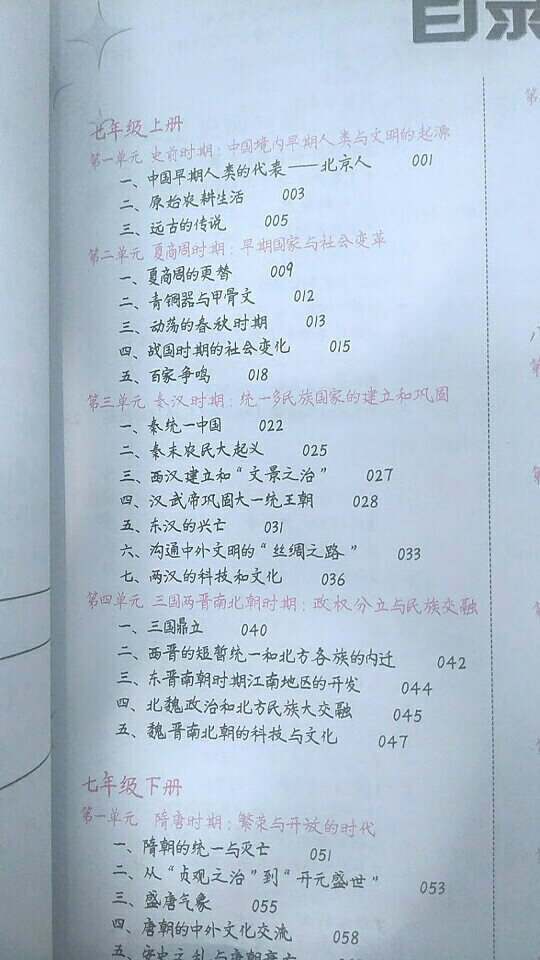 目录
七年级上册
第一单元 史前时期：中国境内早期人类与文明的起源
一、中国早期人类的代表——北京人 001
二、原始农耕生活 003
三、远古的传说 005
第二单元 夏商周时期：早期国家与社会变革
一、夏商周的更替 009
二、青铜器与甲骨文 012
三、动荡的春秋时期 013
四、战国时期的社会变化 015
五、百家争鸣 018
第三单元 秦汉时期：统一多民族国家的建立和巩固
一、秦统一中国 022
二、秦末农民大起义 025
三、西汉建立和“文景之治” 027
四、汉武帝巩固大一统王朝 028
五、东汉的兴亡 031
六、沟通中外文明的“丝绸之路” 033
七、两汉的科技和文化 036
第四单元 三国两晋南北朝时期：政权分立与民族交融
一、三国鼎立 040
二、西晋的短暂统一和北方各族的内迁 042
三、东晋南朝时期江南地区的开发 044
四、北魏政治和北方民族大交融 045
五、魏晋南北朝的科技与文化 047
七年级下册
第一单元 隋唐时期：繁荣与开放的时代
一、隋朝的统一与灭亡 051
二、从“贞观之治”到“开元盛世” 053
三、盛唐气象 055
四、唐朝的中外文化交流 058
五、安史之乱与唐朝衰亡